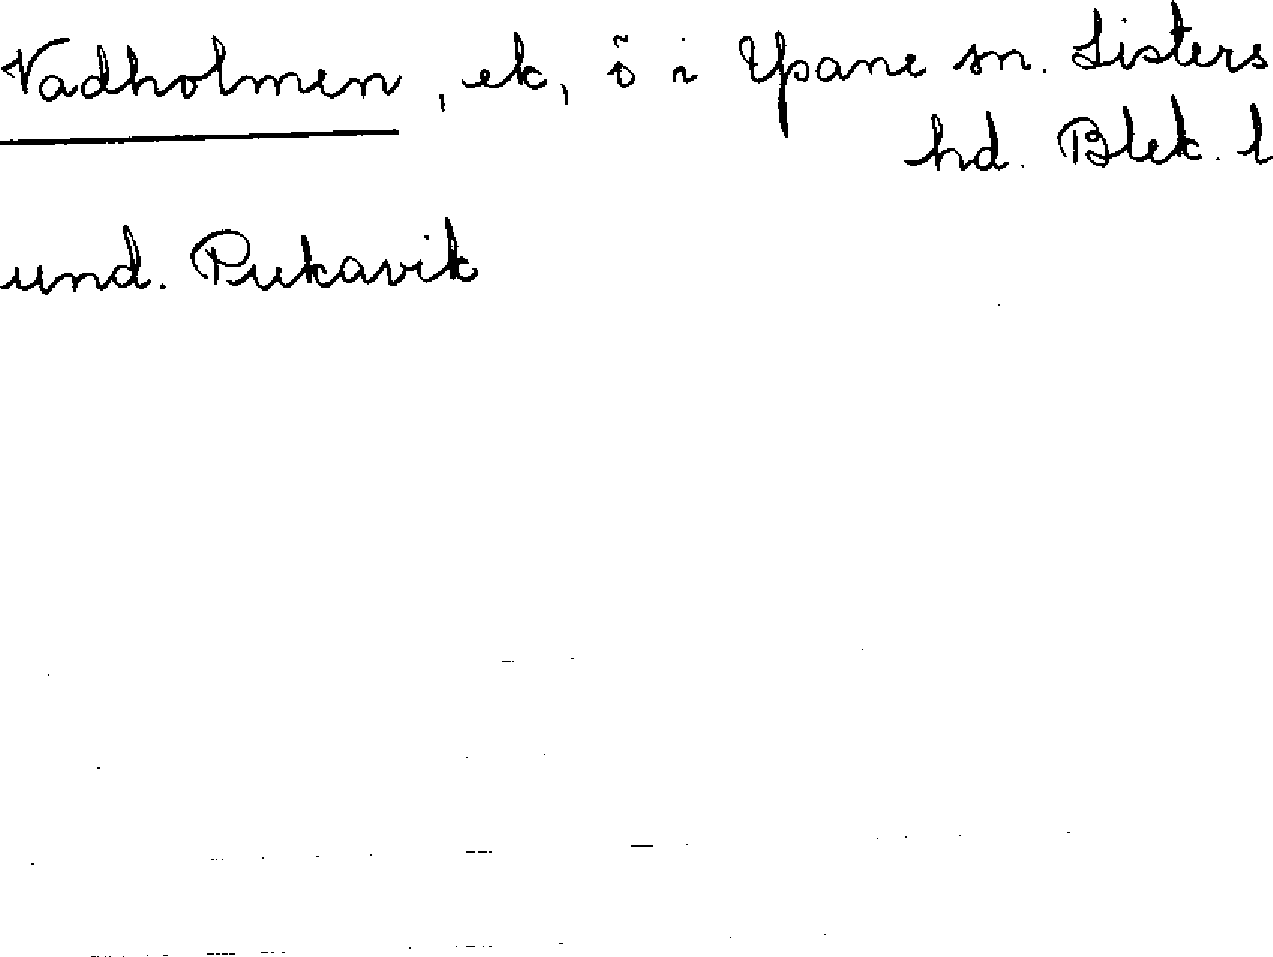 Vadholmen, ek, ö i Ysane sn. Listers
hd. Blek. l
und. Pukavik